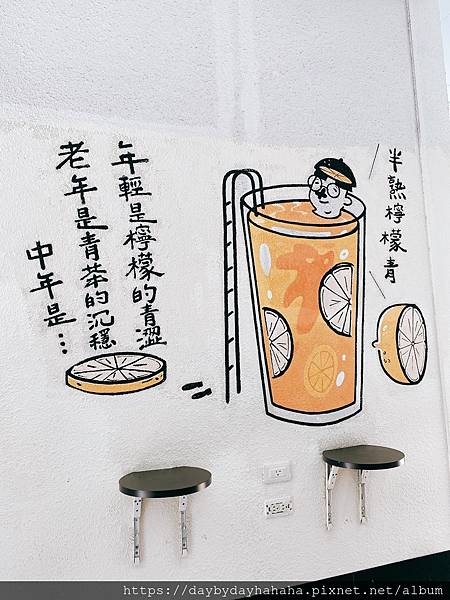 年輕是檸檬的青澀
老年是青茶的沉穩
中年是⋯
半熟檸檬青
https://daybydayhahaha.pixnet.net/album